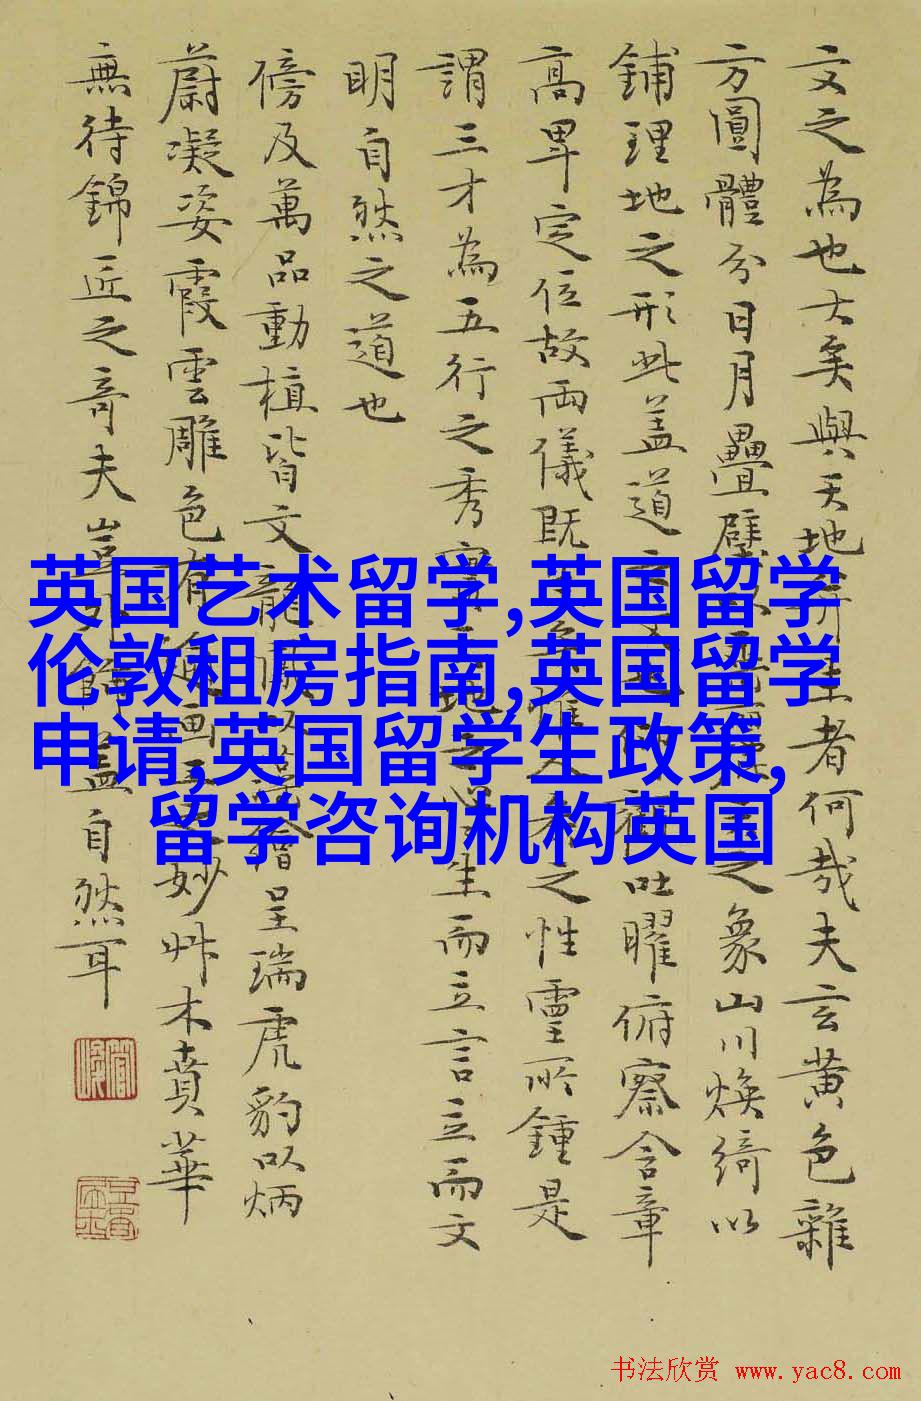 文之為也大矣與天地并生者何哉夫玄黄色雜
方圓體分日月疊璧之象山川焕綺以
鋪理地之形此盖道吐曜俯察含章
高卑定位故兩儀既之性靈所鍾是
謂三才為五行之秀生而立言立而文
明自然之道也
傍及萬品動植皆文龍呈瑞虎豹以炳
蔚凝姿霞雲雕色有妙艸木賁華
無待錦匠之奇夫豈盖自然耳
英国艺术留学,英国留学
伦敦租房指南,英国留学
申请,英国留学生政策,
留学咨询机构英国
书法欣赏 www.yac8.com